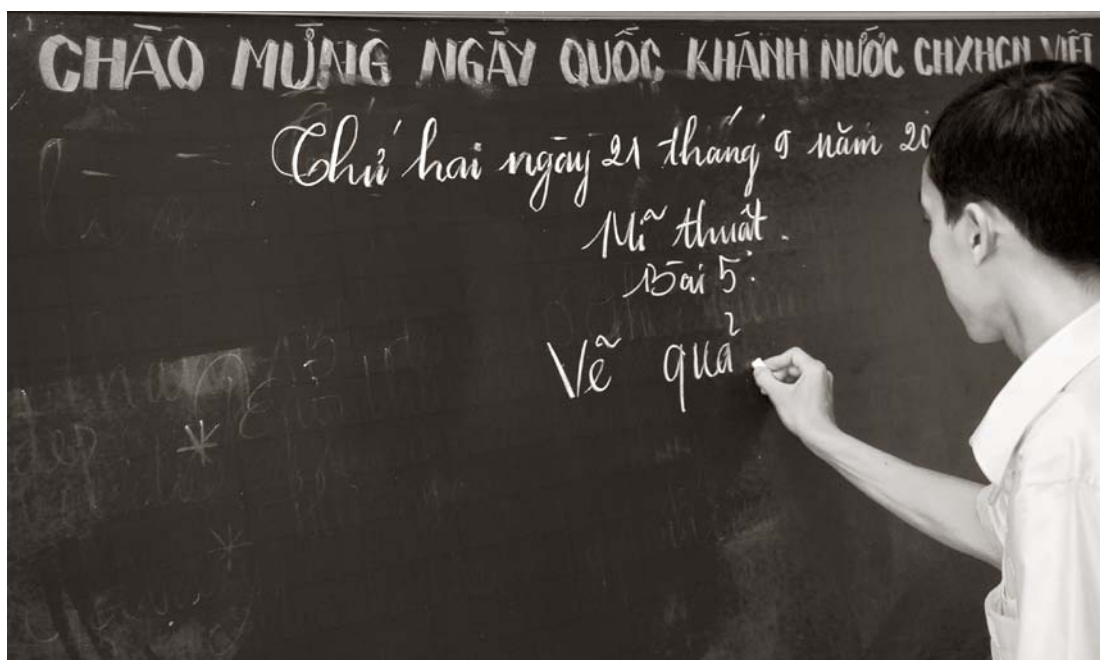 CHÀO MỪNG NGÀY QUỐC KHÁNH NƯỚC CHXHCN VIỆT
Thứ hai ngày 21 tháng 9 năm 20
Mĩ thuật.
Bài 5:
Vẽ quả